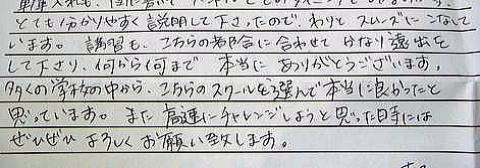 とても分かりやすく説明して下さったので、わりとスムーズにこなして
います。講習も、こちらの都合に合わせてかなり遠出を
して下さり、何から何まで本当にありがとうございます。
多くの学校の中から、こちらのスクールを選んで本当に良かったと
思っています。また高速にチャレンジしようと思った時には
ぜひぜひよろしくお願い致します。